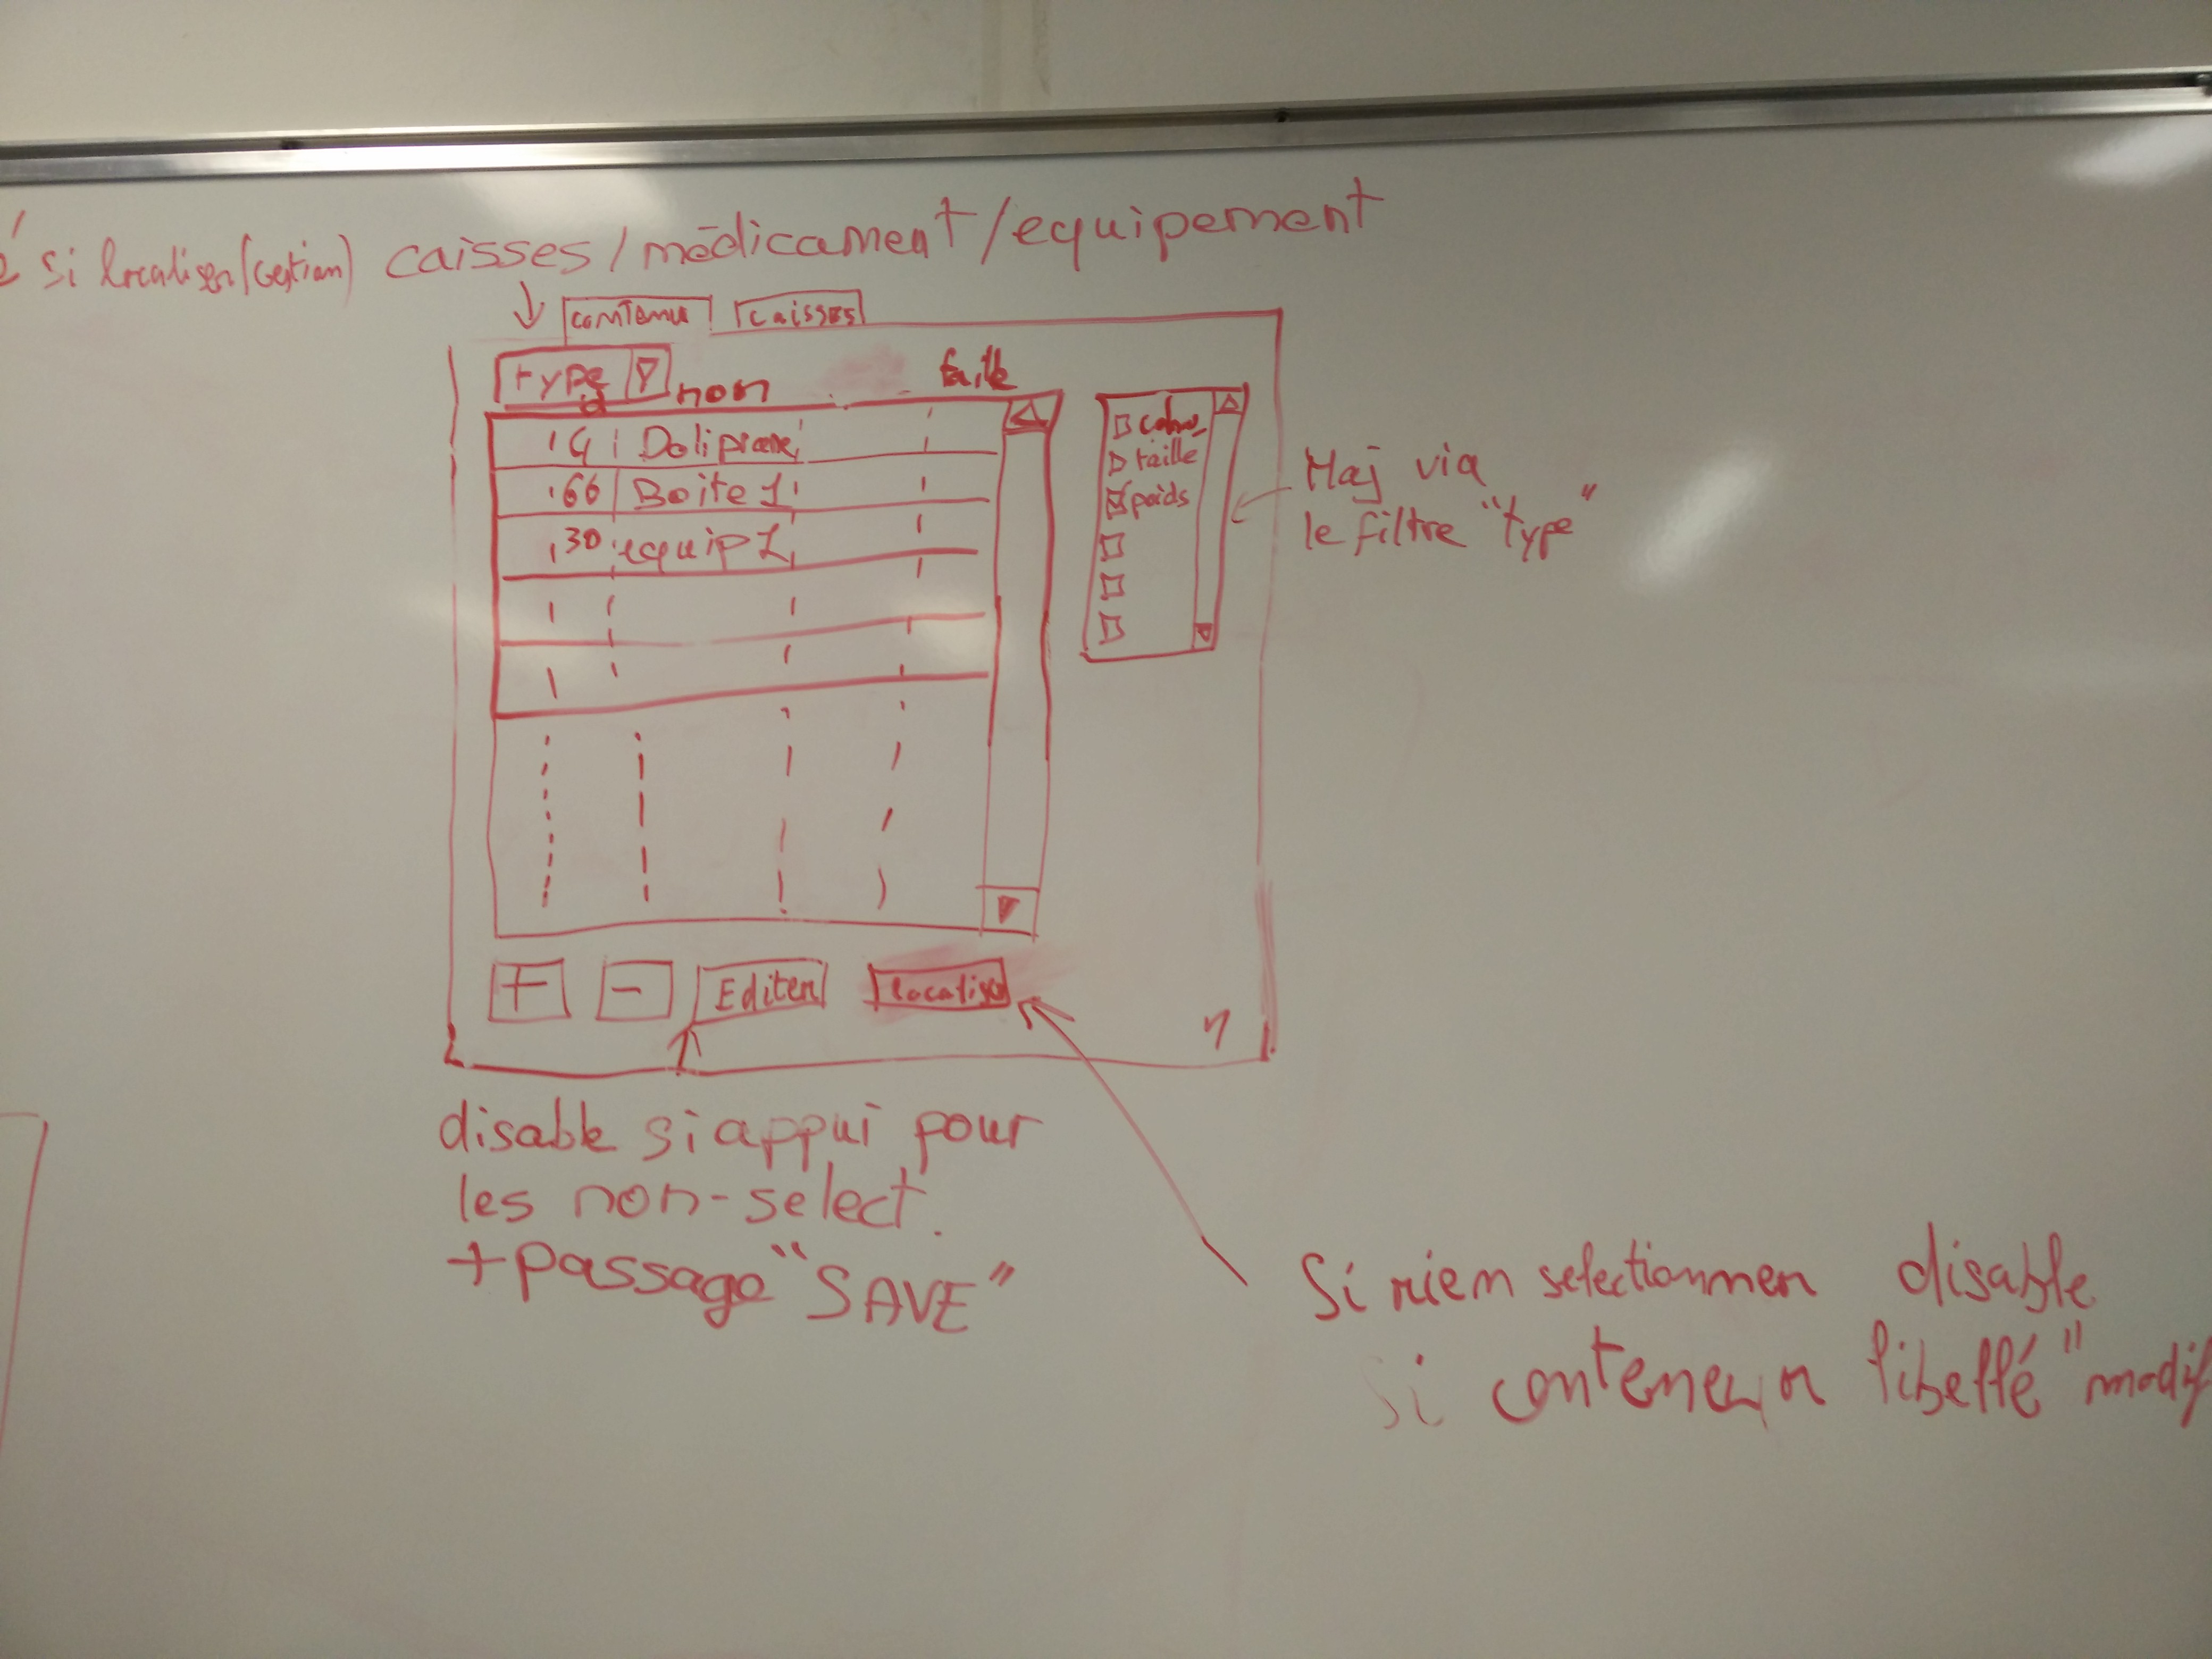 si localiser (Gestion) caisses/médicament/equipement
contenu caisses
type
id nom taille
4 Doliprane
66 Boite 1
30 equip 1
taille
poids
Maj via
le filtre "type"
+ - Editer localiser
disable si appui pour
les non-select.
+ passage "SAVE"
Si rien selectionner disable
si conteneur libellé "modif